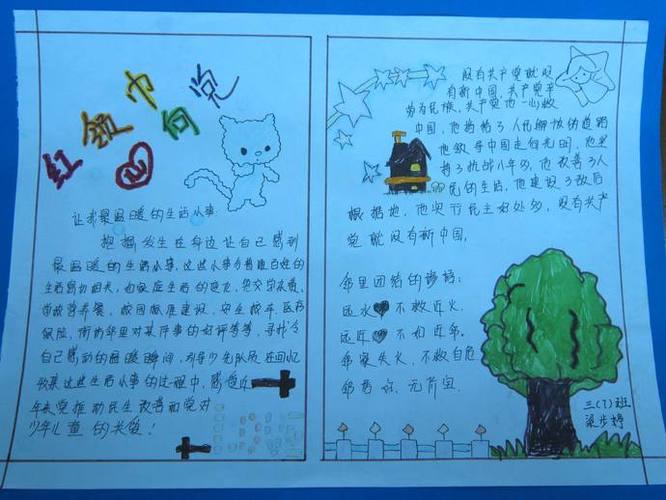 红领巾心向党
让我最温暖的生活小事:
把握发生在身边让自己感到
最温暖的生活小事,这些小事与普通百姓的
生活密切相关,如家庭生活的变化,
营养餐,校园标准建设,安全校车,医疗
保险,街坊邻里对某件事的好评等等,寻找令
自己感动的温暖瞬间,引导少先队员在回忆
收集这些生活小事的过程中,感受近
年来党推动民生改善和党对
少年儿童的关爱!
没有共产党就没
有新中国,共产党辛
劳为民族,共产党他一心救
中国,他指给了人民解放的道路
他领导中国走向光明,他坚
持了抗战八年多,他改善了人
民的生活,他建设了敌后
根据地,他实行民主好处多,没有共产
党就没有新中国,
邻里团结的谚语:
远水不救近火.
远近不如近邻.
邻家失火,不救自危
邻居好,无价宝.
三(7)班